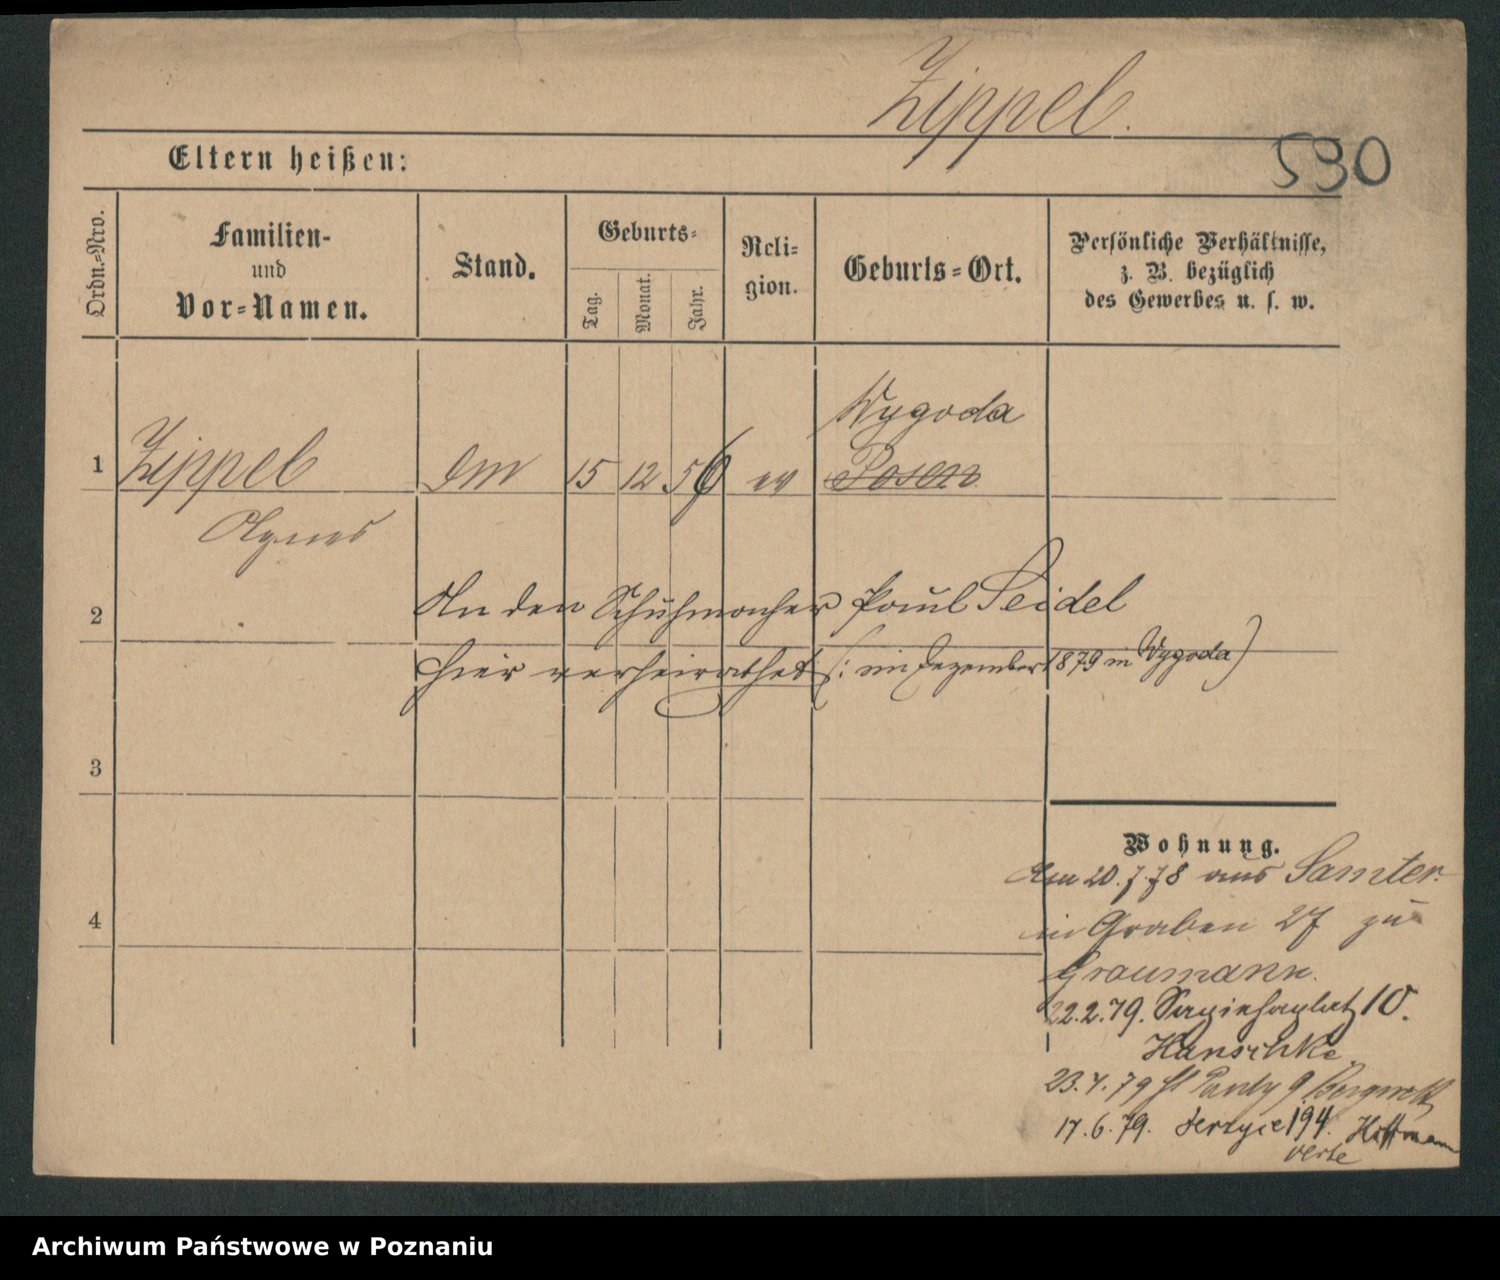 Zippel.
530
Eltern heißen:
Ordn.-Nro.
Familien-
und
Vor-Namen.
Stand.
Geburts-
Tag.
Monat.
Jahr.
Reli-
gion.
Geburts-Ort.
Persönliche Verhältnisse,
z. B. bezüglich
des Gewerbes u. s. w.
Wygoda
1 Zippel 15 12 56 ev Posen
Agnes
2 An den Schuhmacher Paul Seidel
hier verheirathet (: im Dezember 1879 in Wygoda)
3
Wohnung.
Am 20.7.78 aus Samter.
4
in Graben 27 zu
Graumann.
22.2.79. Sapiehaplatz 10.
Hanschke.
23.4.79 9
17.6.79. Jerzyce 194. Hoffmann
verte
Archiwum Państwowe w Poznaniu